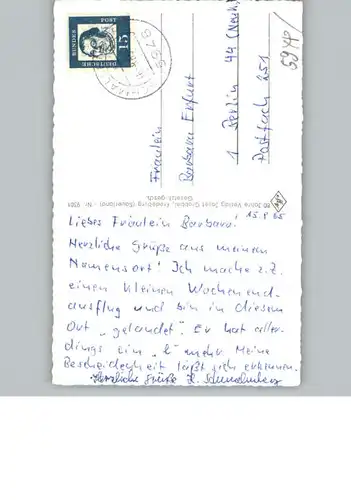 15
POST
DEUTSCHE
BUNDES
Fräulein
Barbara Erfurt
1 Berlin 44 (Neuk.)
Postfach 251
60 Jahre Verlag Josef Grobbel, Fredeburg (Sauerland) - Nr. 9381
Gesetzl. gesch.
15.8.65
Liebes Fräulein Barbara!
Herzliche Grüße aus meinem
Namensort! Ich mache z.Z.
einen kleinen Wochenend-
ausflug und bin in diesem
Ort „gelandet". Er hat aller-
dings ein „l" mehr. Meine
Bescheidenheit läßt sich erkennen.
Herzliche Grüße